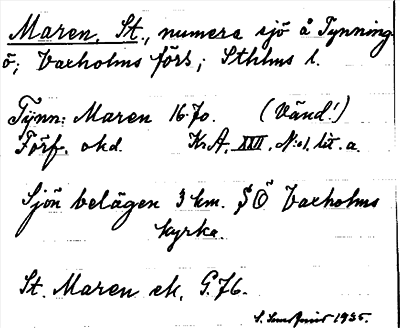 Maren, St., numera sjö å Tynning
ö; Vaxholms förs; Sthlms l.
Tynn: Maren 1670. (Vänd!)
Förf. okd. K.A. XXII, N:o1. lit. a.
Sjön belägen 3 km. SÖ Vaxholms
kyrka.
St. Maren ek. G.76.
S. 1935.